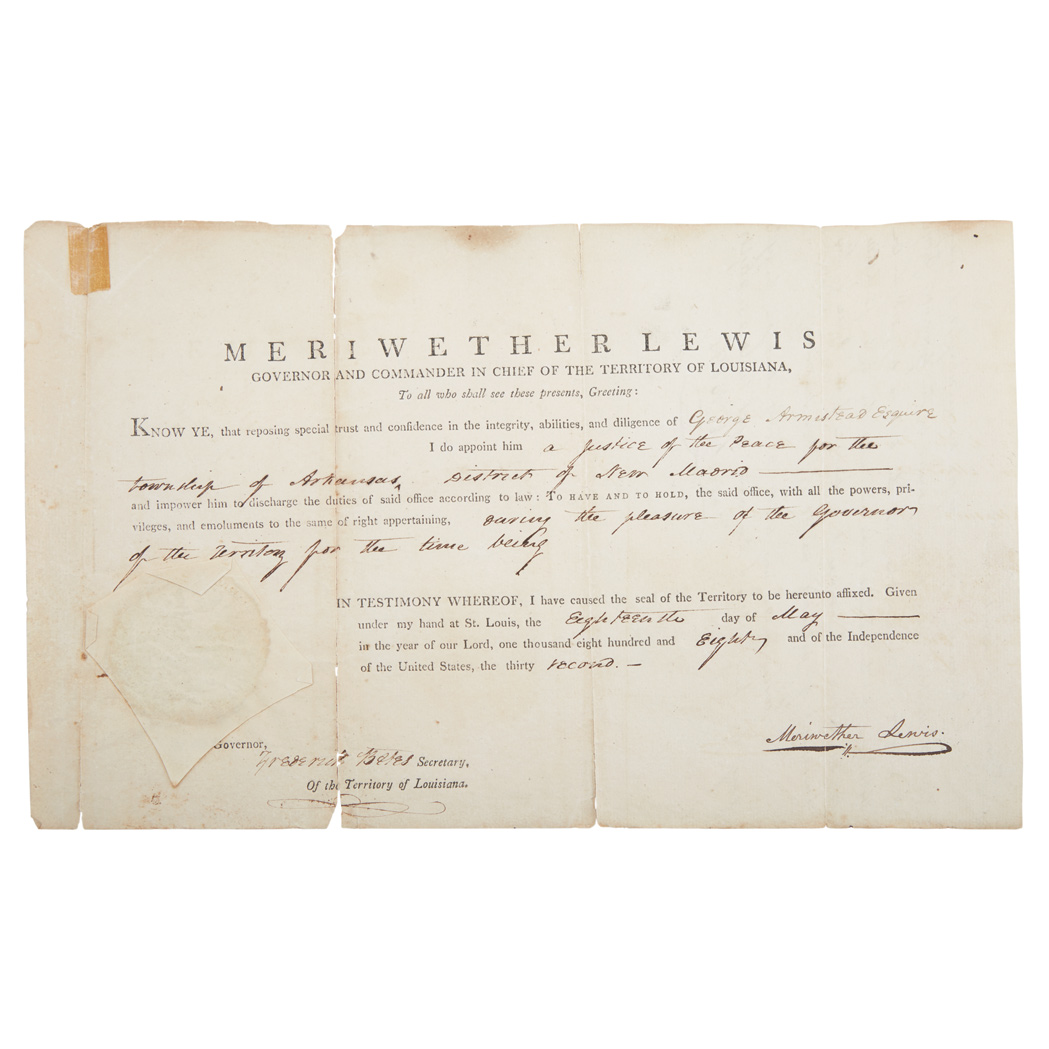 MERIWETHER LEWIS
GOVERNOR AND COMMANDER IN CHIEF OF THE TERRITORY OF LOUISIANA,
To all who shall see these presents, Greeting:
KNOW YE, that reposing special trust and confidence in the integrity, abilities, and diligence of George Armistead Esquire
I do appoint him a Justice of the Peace for the
township of Arkansas, District of New Madrid
and impower him to discharge the duties of said office according to law: TO HAVE AND TO HOLD, the said office, with all the powers, pri-
vileges, and emoluments to the same of right appertaining, during the pleasure of the Governor
of the Territory for the time being
IN TESTIMONY WHEREOF, I have caused the seal of the Territory to be hereunto affixed. Given
under my hand at St. Louis, the Eighteenth day of May
in the year of our Lord, one thousand eight hundred and Eight, and of the Independence
of the United States, the thirty second. —
Meriwether Lewis.
Governor,
Frederick Bates Secretary,
Of the Territory of Louisiana.